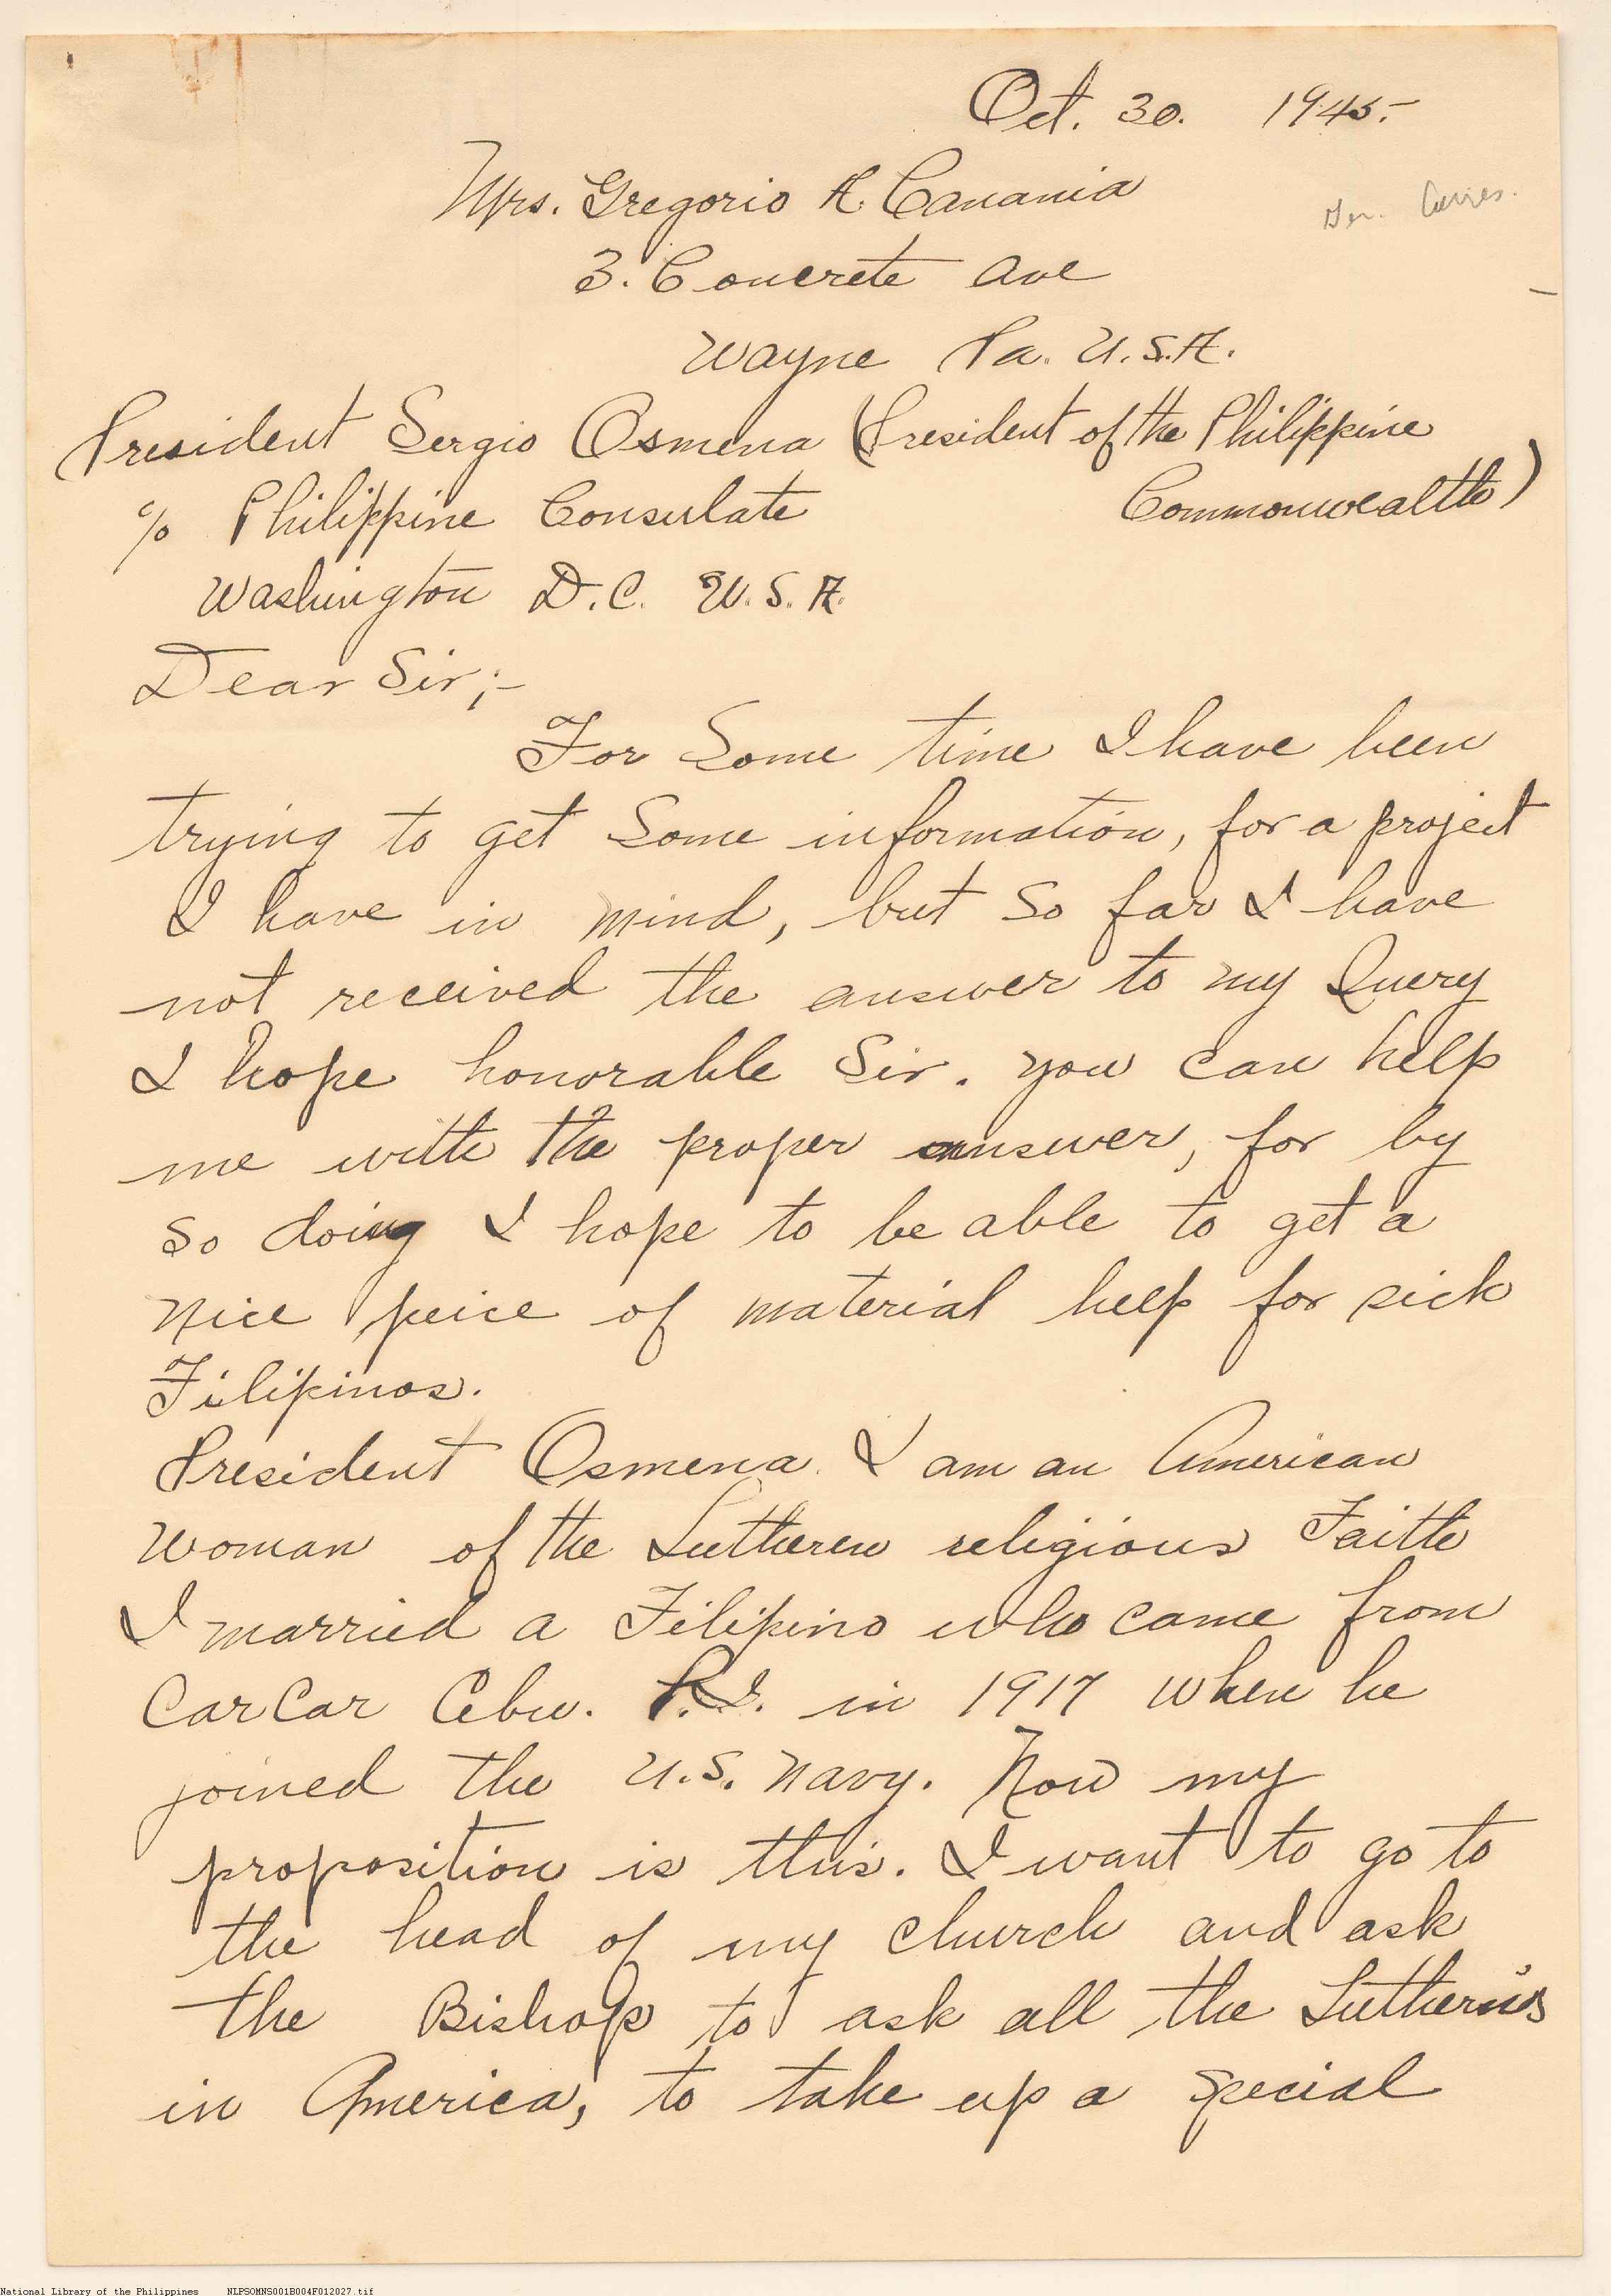 Oct. 30. 1945.-
Mrs. Gregorio A. Canania
Gen. Corres.
3. Concrete Ave
Wayne Pa. U.S.A.
President Sergio Osmena (President of the Philippine
Commonwealth)
c/o Philippine Consulate
Washington D.C. U.S.A.
Dear Sir;-
For Some time I have been
trying to get Some information, for a project
I have in mind, but So far I have
not received the answer to my Query
I hope honorable Sir. you can help
me with the proper answer, for by
So doing I hope to be able to get a
Nice peice of material help for sick
Filipinos.
President Osmena. I am an American
Woman of the Lutheren religious Faith
I married a Filipino who came from
CarCar Cebu. P.I. in 1917 when he
joined the U.S. Navy. Now my
proposition is this. I want to go to
the head of my church and ask
the Bishop to ask all the Lutherens
in America, to take up a special
National Library of the Philippines NLPSOMNS001B004F012027.tif